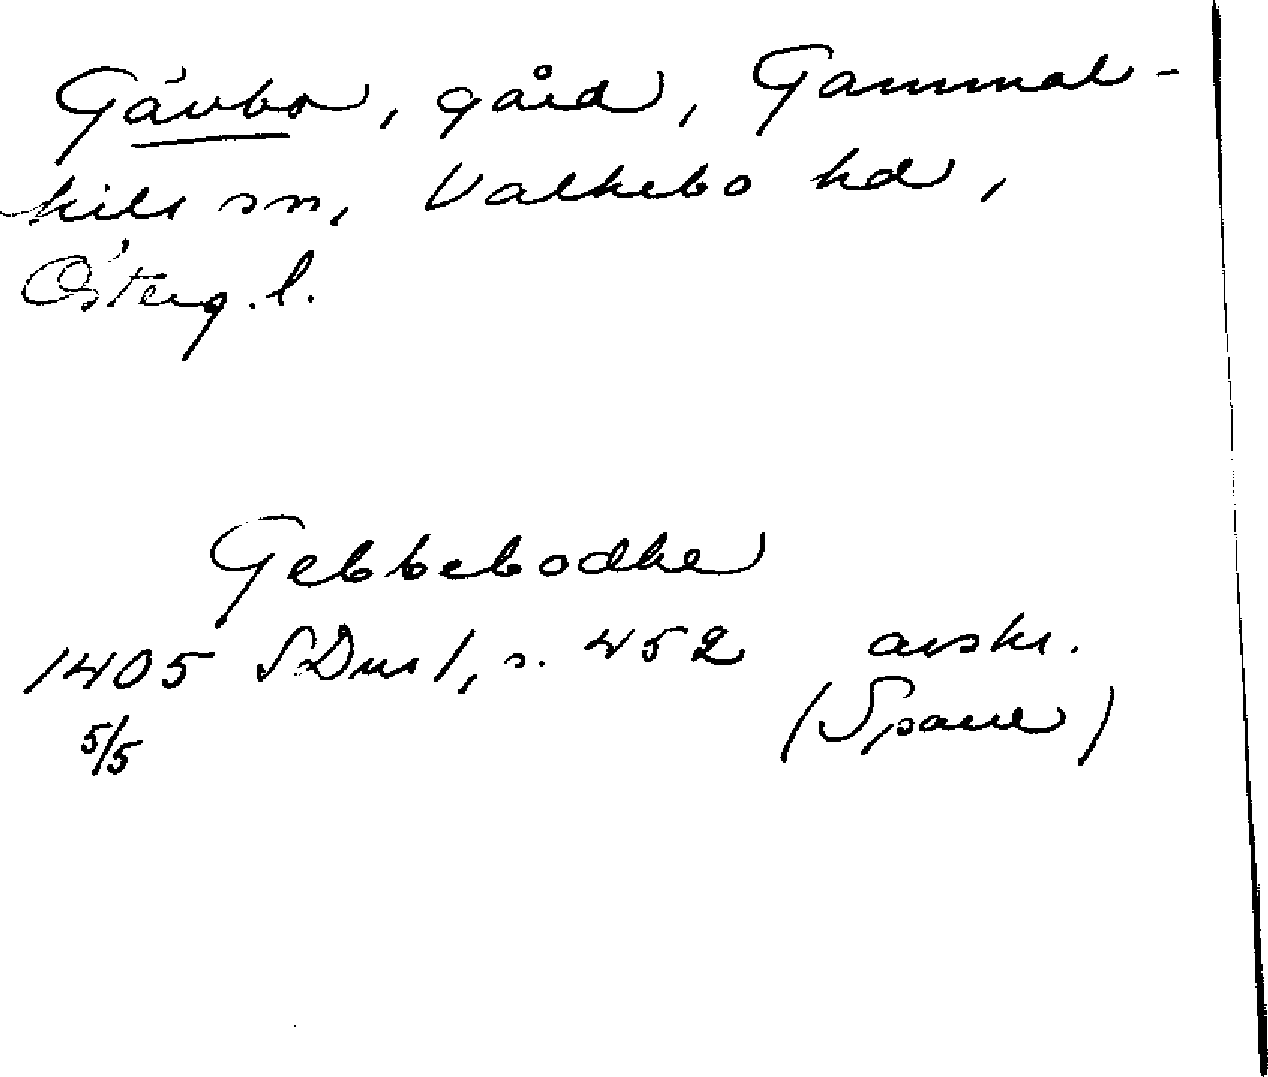 Gävbo, gård, Gammal-
kils sn, Valkebo hd,
Österg. l.
Gebbebodhe
1405 SDns 1, s. 452 avskr.
5/5 (Spaue)